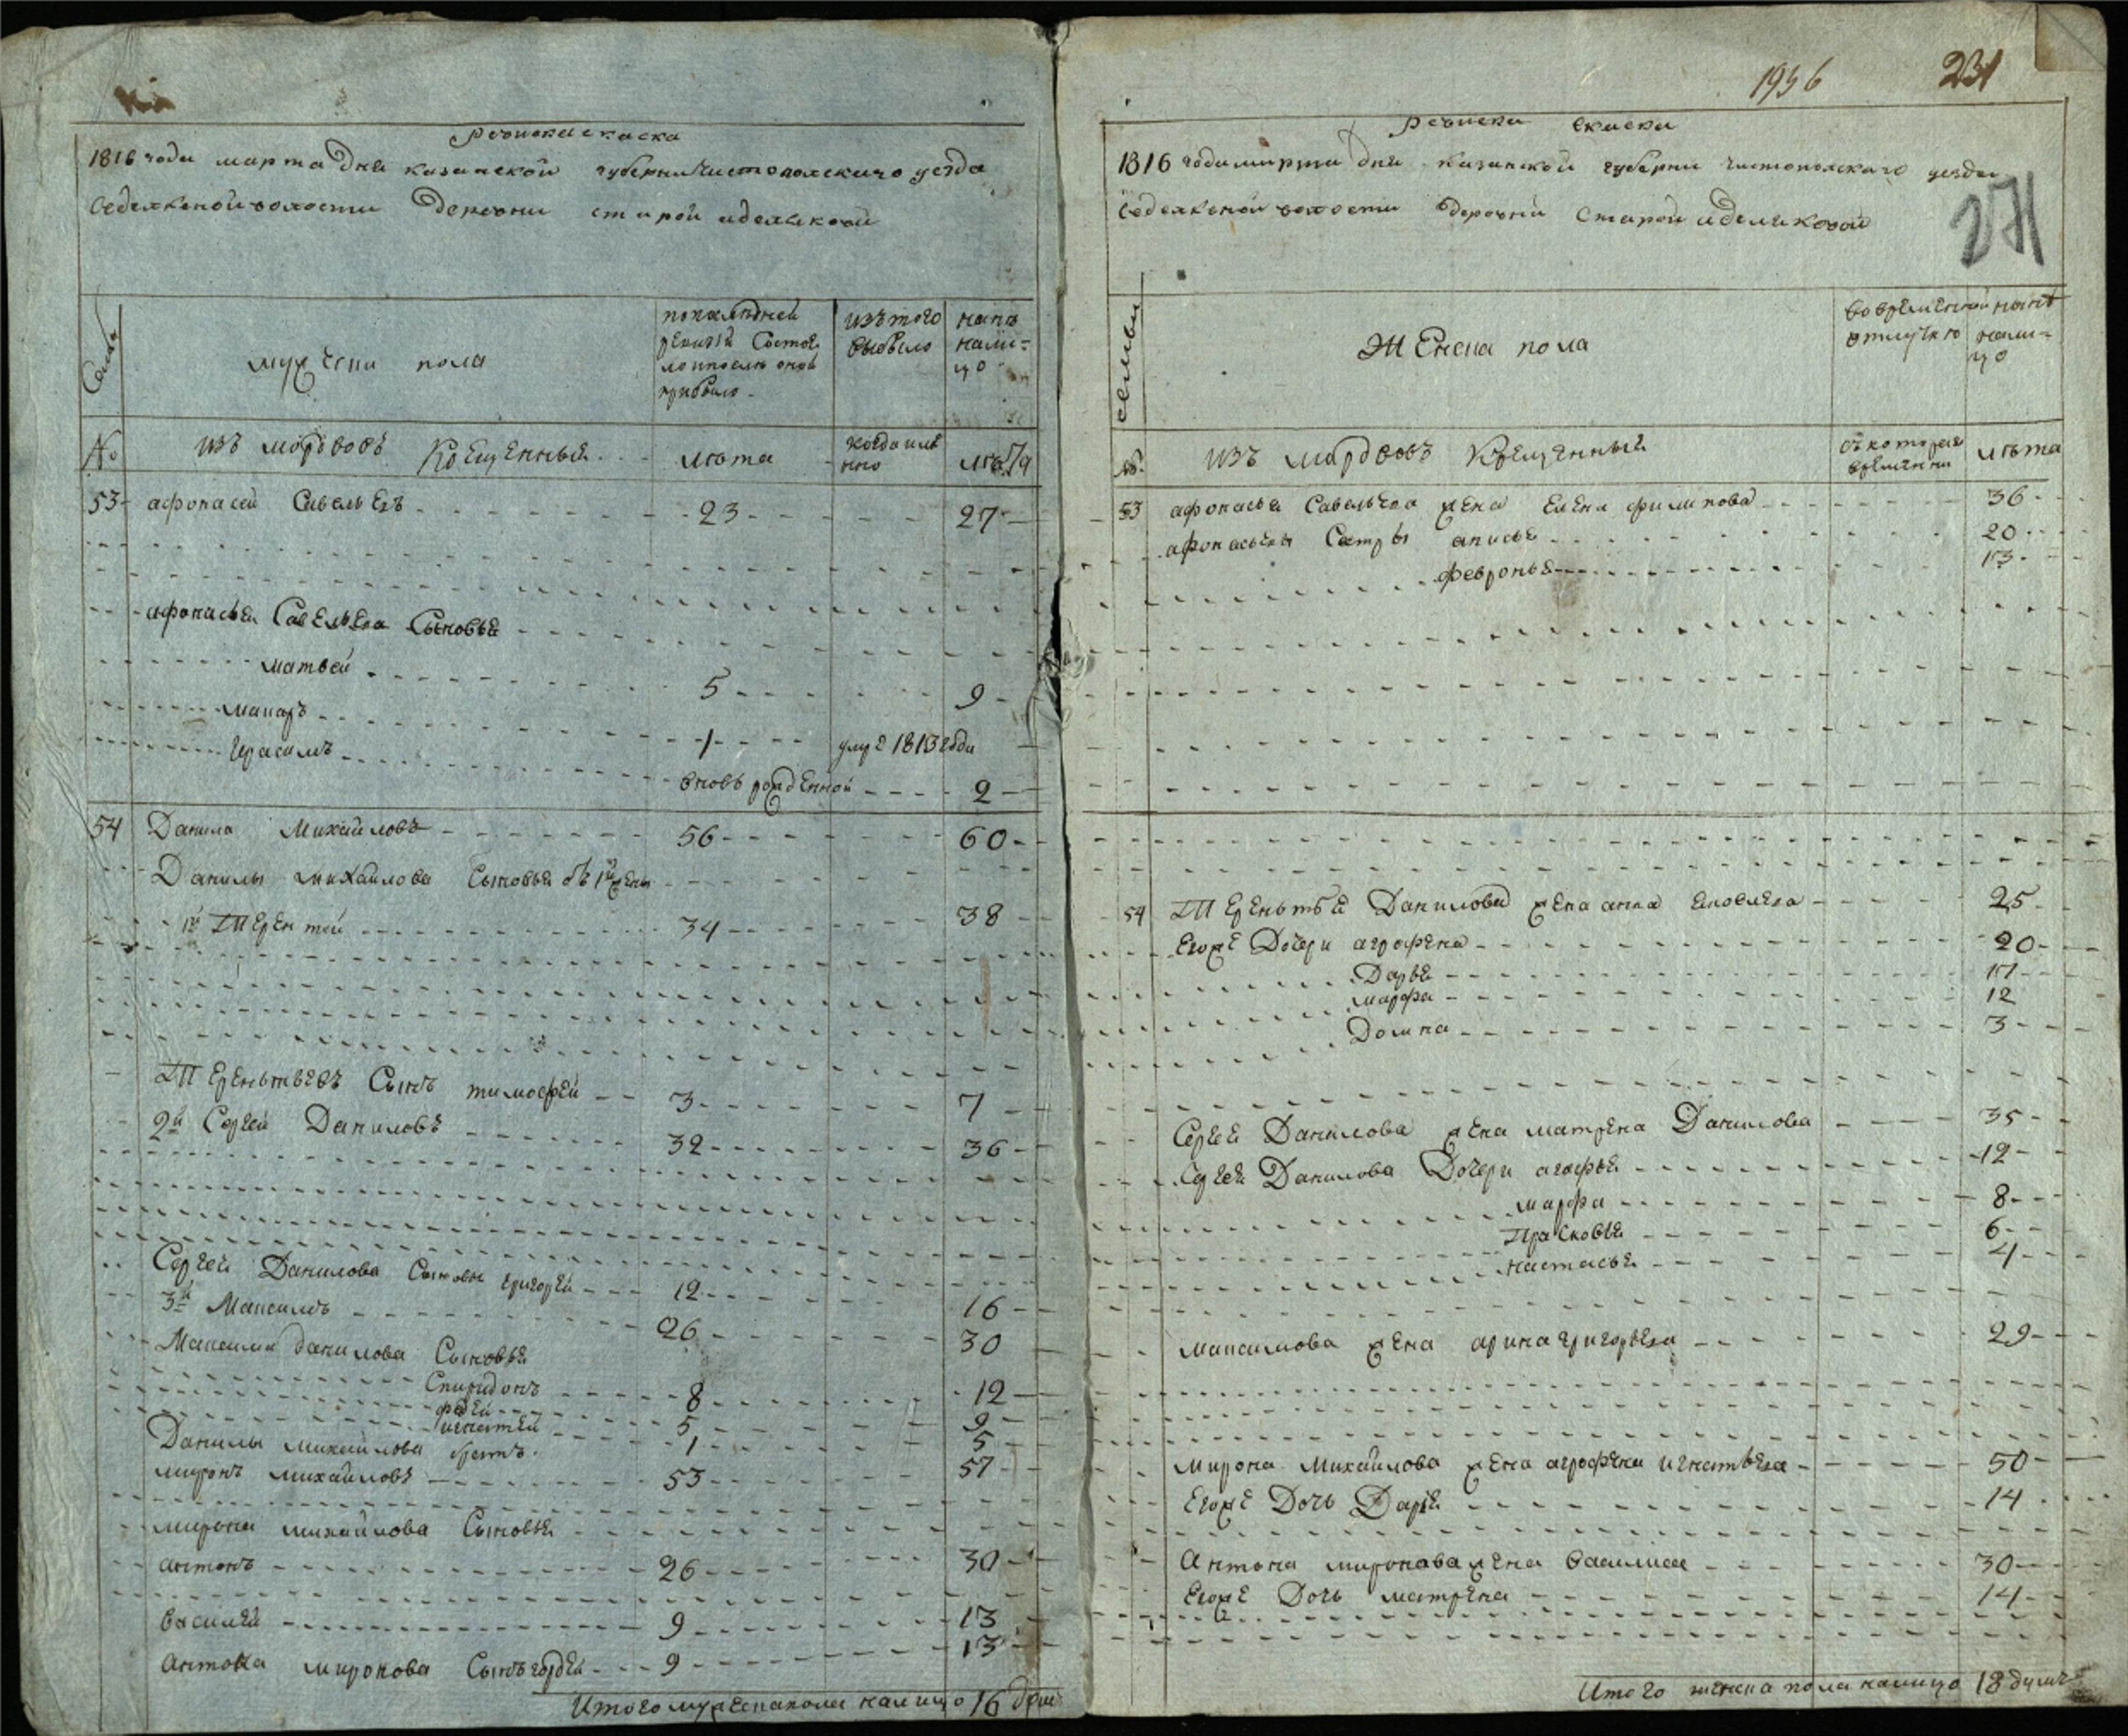 Ревиская скаска
1816 года марта Дня казанской губерни Чистополскаго уезда
Седелкиной волости Деревни старой иделековой
Семьи
мужеска пола
попоследней ревизiи Состоя ло ипосле оной прибыло
изътого выбыло
нынѣ нали=цо
№
изъ мордвовъ Крещенныя
лѣта
когда имянно
лѣта
53 афонасей Савельевъ 23 27
афонасья Савельева Сыновья
матвей 5 9
макаръ 1 умре 1813 года
Герасимъ вновь рожденной 2
54 Данила Михайловъ 56 60
Данилы михайлова Сыновья отъ 1й жены
1й Терентей 34 38
Терентьевъ Сынъ тимофей 3 7
2й Сергей Даниловъ 32 36
Сергея Данилова Сыновья григорей 12 16
3й Максимъ 26 30
Максима данилова Сыновья
Спиридонъ 8 12
фадей 5 9
игнатей 1 5
Данилы михайлова братъ
миронъ михайловъ 53 57
мирона михайлова Сыновья
антонъ 26 30
василей 9 13
антона миронова Сынъ гордей 9 13
Итого мужеска пола налицо 16 душъ
1956 231
271
Ревиская скаска
1816 года марта Дня казанской губерни чистополскаго уезда
Седелкиной волости деревни Старой иделековой
семьи
Женска пола
вовременной отлучке
нынѣ нали=цо
№
изъ мордвовъ Крещенныя
съкоторая времяни
лѣта
53 афонасья Савельева жена Елена филипова 36
афонасьевы Сестры анисья 20
февронья 13
54 Терентья Данилова жена анна яковлева 25
Егоже Дочери аграфена 20
Дарья 17
марфа 12
Домна 3
Сергея Данилова жена матрена Данилова 35
Сергея Данилова Дочери агафья 12
марфа 8
Прасковья 6
настасья 4
максимова жена арина григорьева 29
мирона Михайлова жена аграфена игнатьева 50
Егоже Дочь Дарья 14
Антона миронова жена василиса 30
Егоже Дочь матрена 14
Итого женска пола налицо 18 душъ